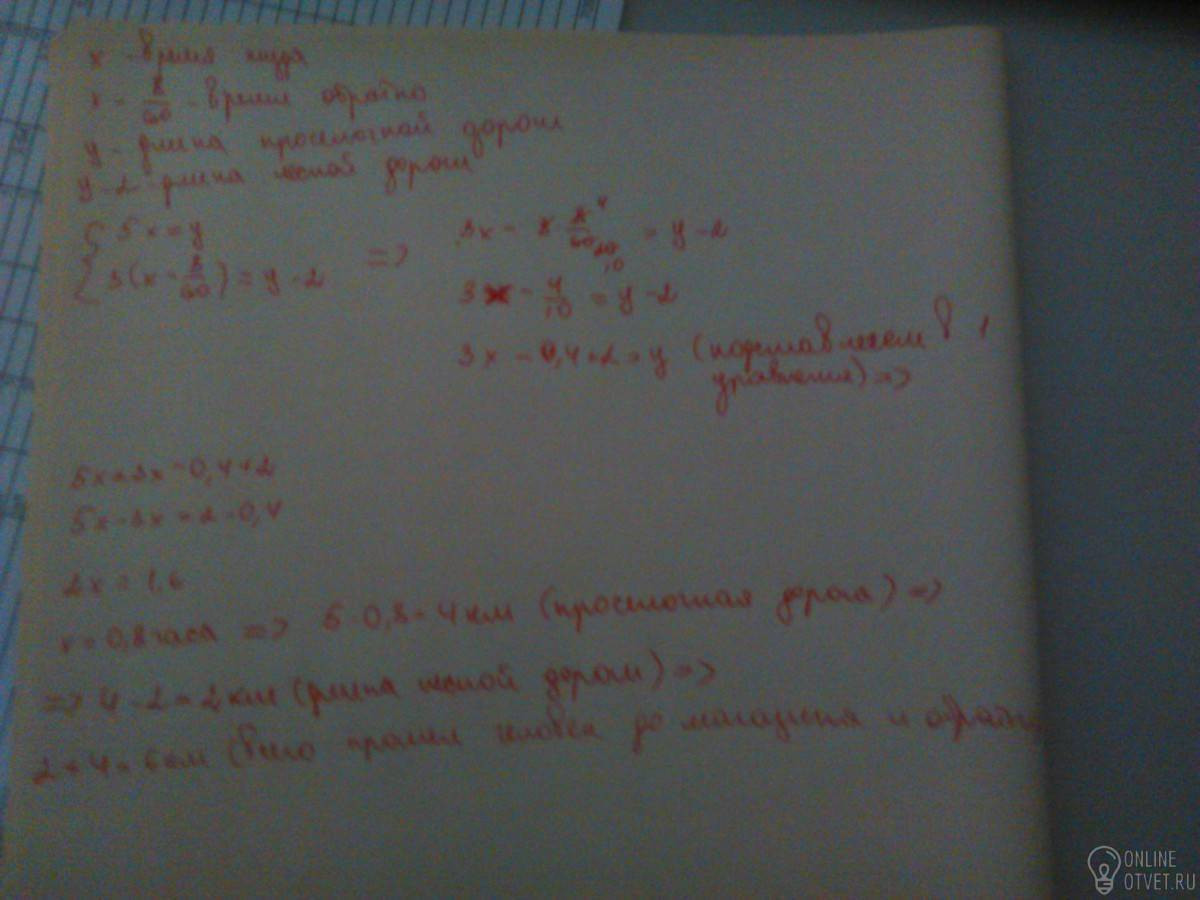 x - время туда
x - 8/60 - время обратно
y - длина проселочной дороги
y - 2 - длина лесной дороги
5x = y
3(x - 8/60) = y - 2
=>
3x - 8/60 = y - 2
3x - 4/10 = y - 2
3x - 0,4 + 2 = y (подставляем в 1
уравнение) =>
5x = 3x - 0,4 + 2
5x - 3x = 2 - 0,4
2x = 1,6
x = 0,8 часа => 5 · 0,8 = 4 км (проселочная дорога) =>
=> 4 - 2 = 2 км (длина лесной дороги) =>
2 + 4 = 6 км (всего прошел человек до магазина и обратно
ONLINE
OTVET.RU